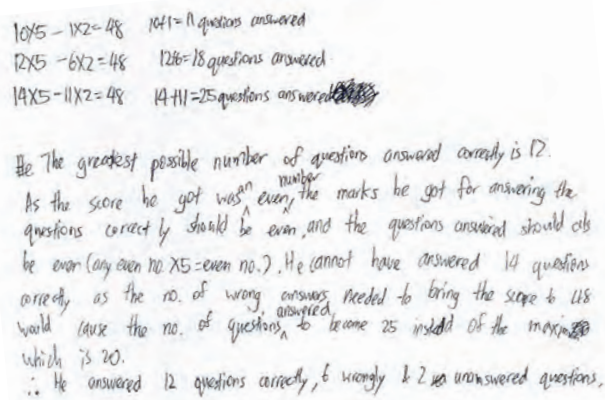 10x5 - 1x2 = 48 10+1 = 11 questions answered
12x5 - 6x2 = 48 12+6 = 18 questions answered
14x5 - 11x2 = 48 14+11 = 25 questions answered
The greatest possible number of questions answered correctly is 12.
As the score he got was an even number, the marks he got for answering the
questions correctly should be even, and the questions answered should
be even (any even no. x5 = even no.). He cannot have answered 14 questions
correctly as the no. of wrong answers needed to bring the score to 48
would cause the no. of questions answered to become 25 instead of the
which is 20.
∴ He answered 12 questions correctly, 6 wrongly & 2 unanswered questions.